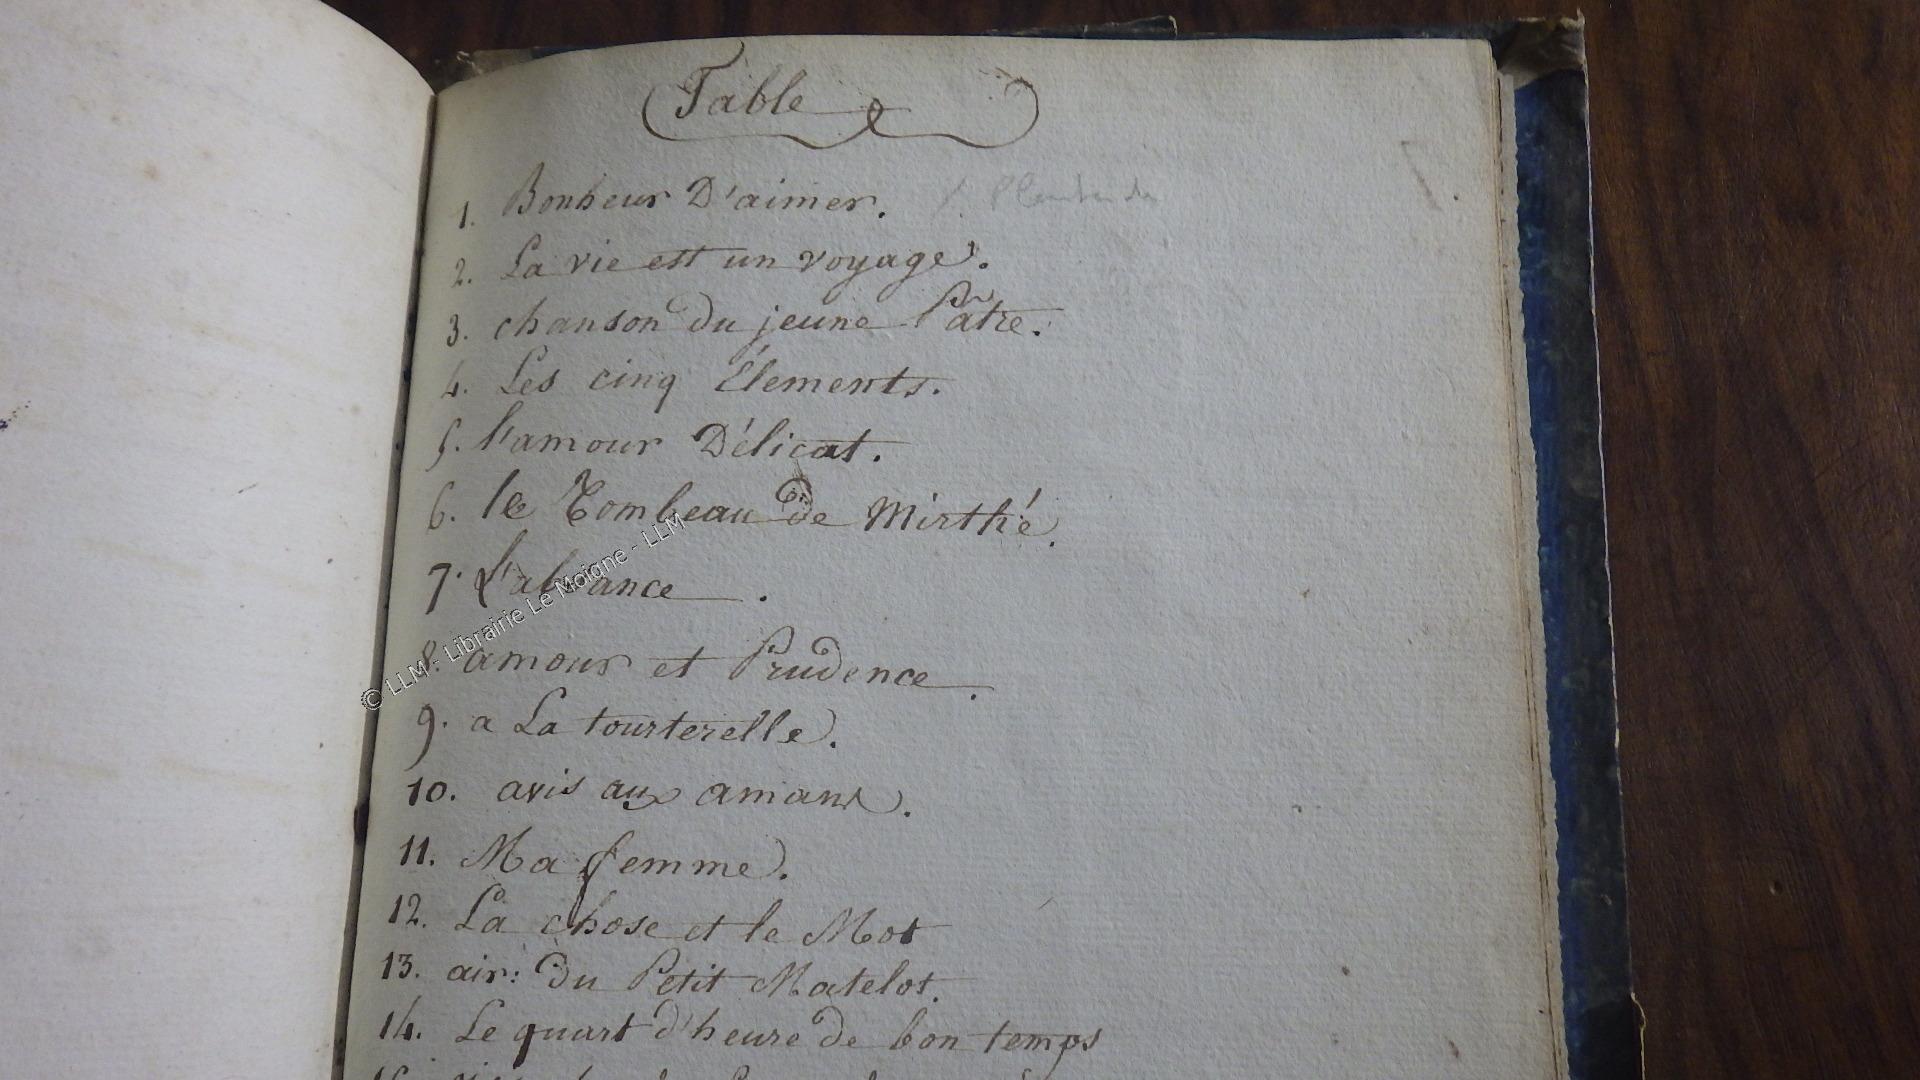 Table
1. Bonheur D'aimer.
2. La vie est un voyage.
3. chanson du jeune Pâtre.
4. Les cinq Élements.
5. l'amour Délicat.
6. le Tombeau de Mirthé.
7. L'absance.
8. amour et Prudence.
9. a La tourterelle.
10. avis aux amans.
11. Ma femme.
12. La chose et le Mot
13. air: du Petit Matelot.
14. Le quart d'heure de bon temps
© LLM - Librairie Le Moigne - LLM